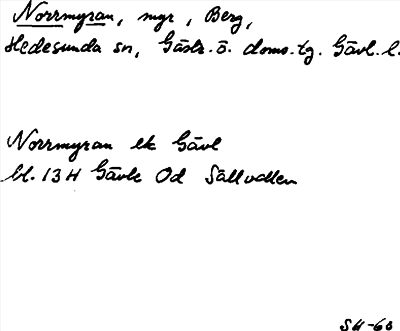 Norrmyran, myr, Berg,
Hedesunda sn, Gästr. ö. doms. tg. Gävl. l.
Norrmyran ek Gävl
bl. 13H Gävle Od Sällvallen
SH-60